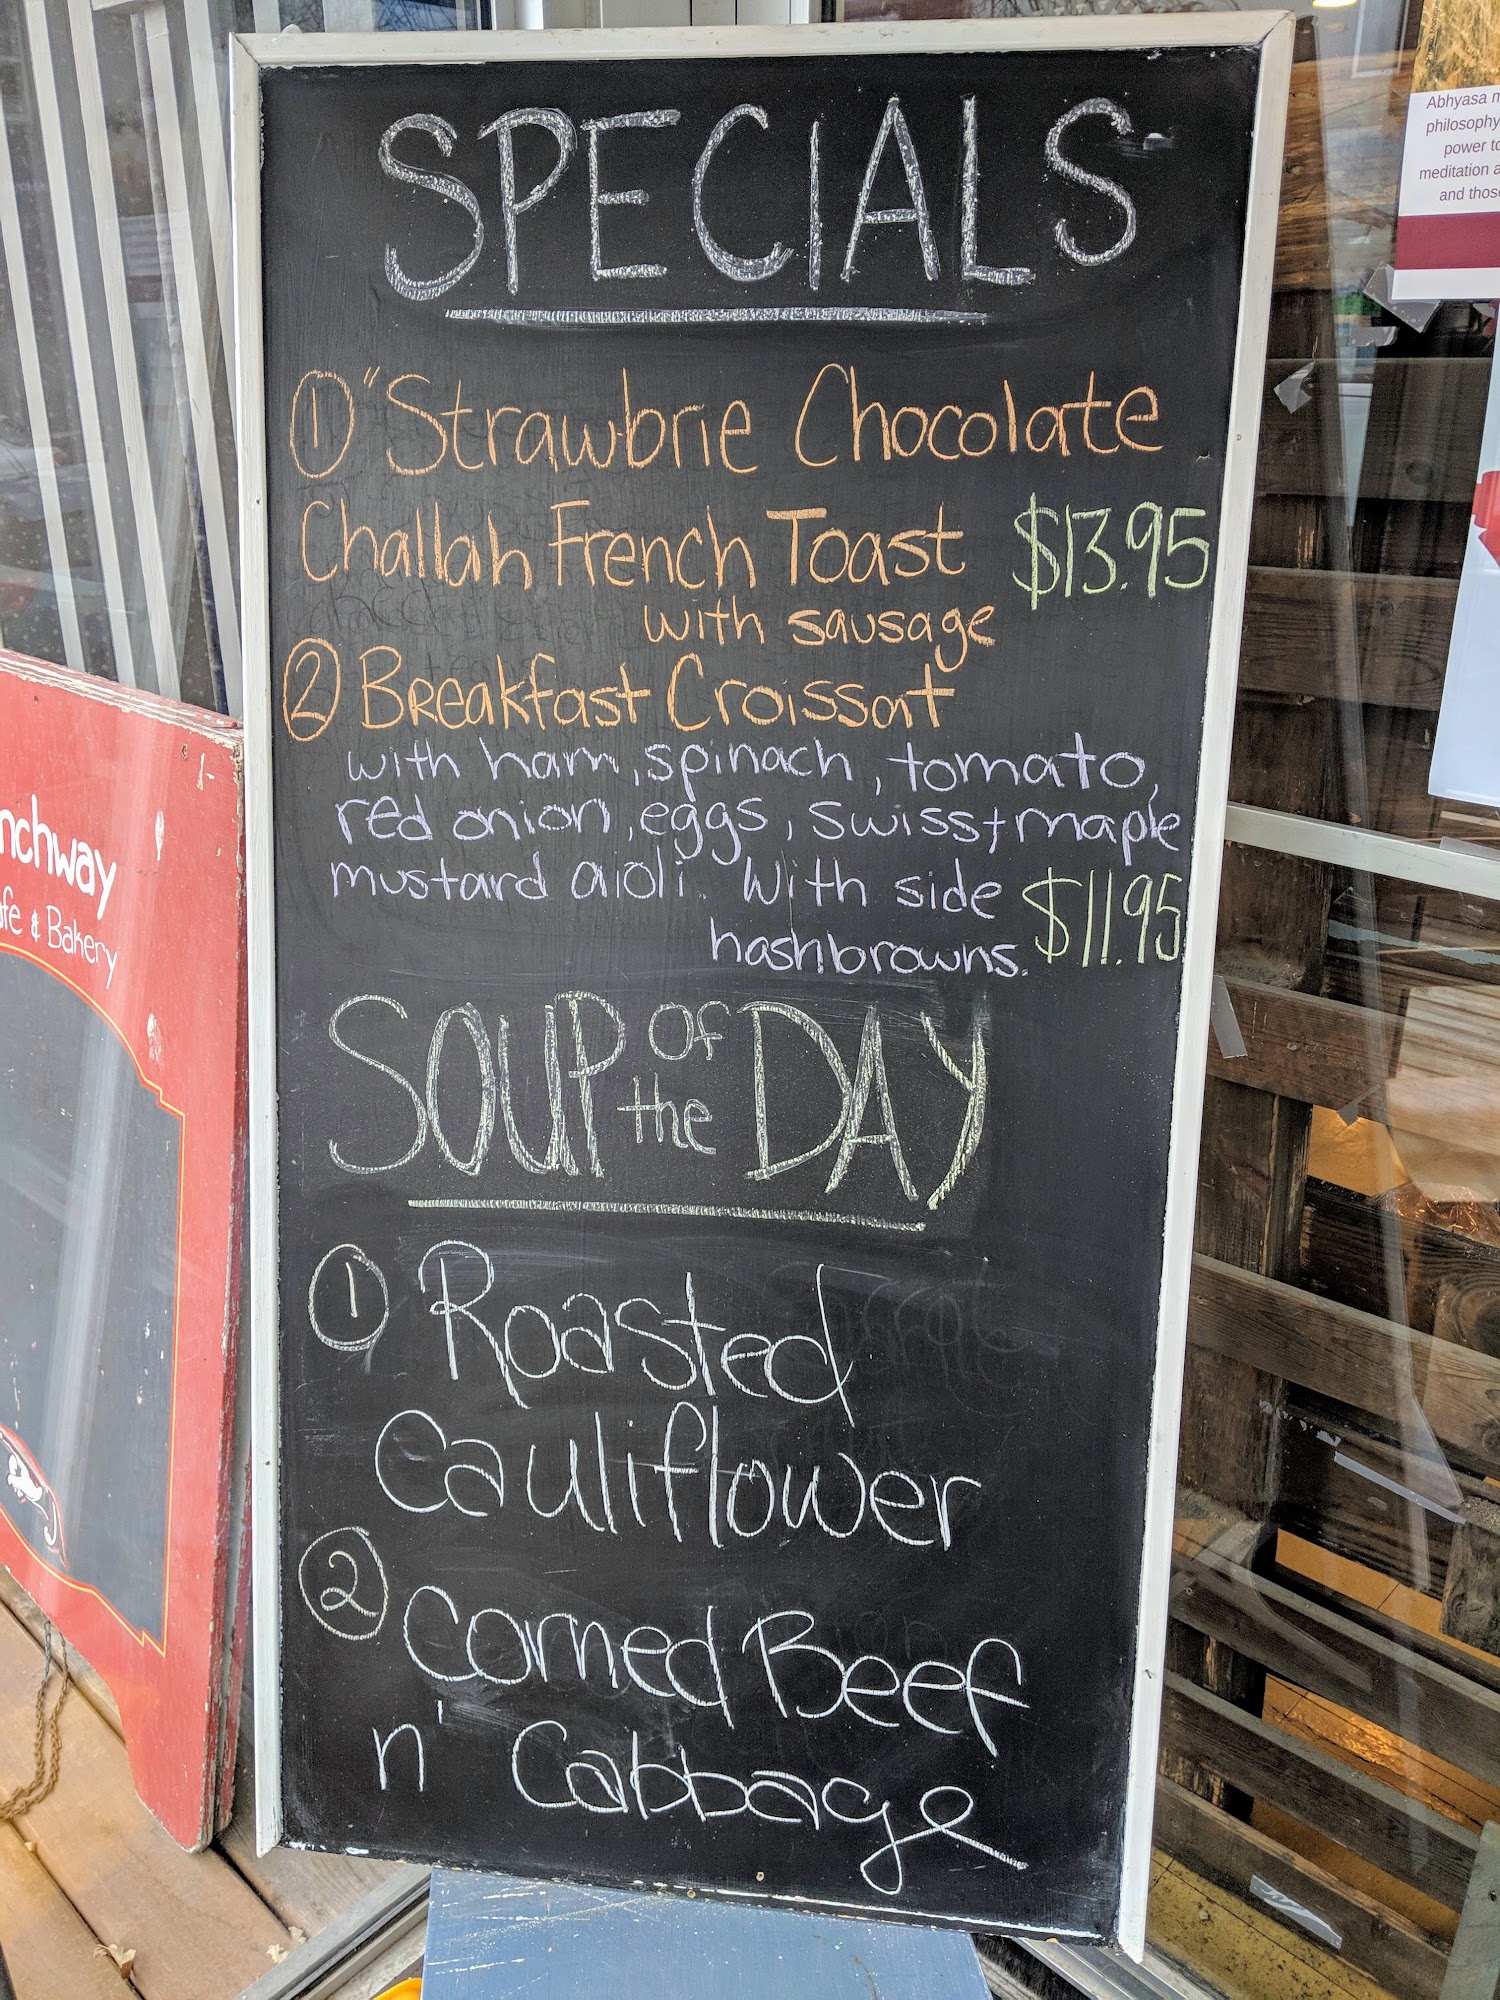 SPECIALS
① "Strawbrie Chocolate
Challah French Toast $13.95
with sausage
② Breakfast Croissant
with ham, spinach, tomato,
red onion, eggs, swiss + maple
mustard aioli. With side $11.95
hashbrowns.
SOUP of the DAY
① Roasted
Cauliflower
② Corned Beef
n' Cabbage
nchway
afe & Bakery
Abhyasa
philosophy
power to
meditation a
and those